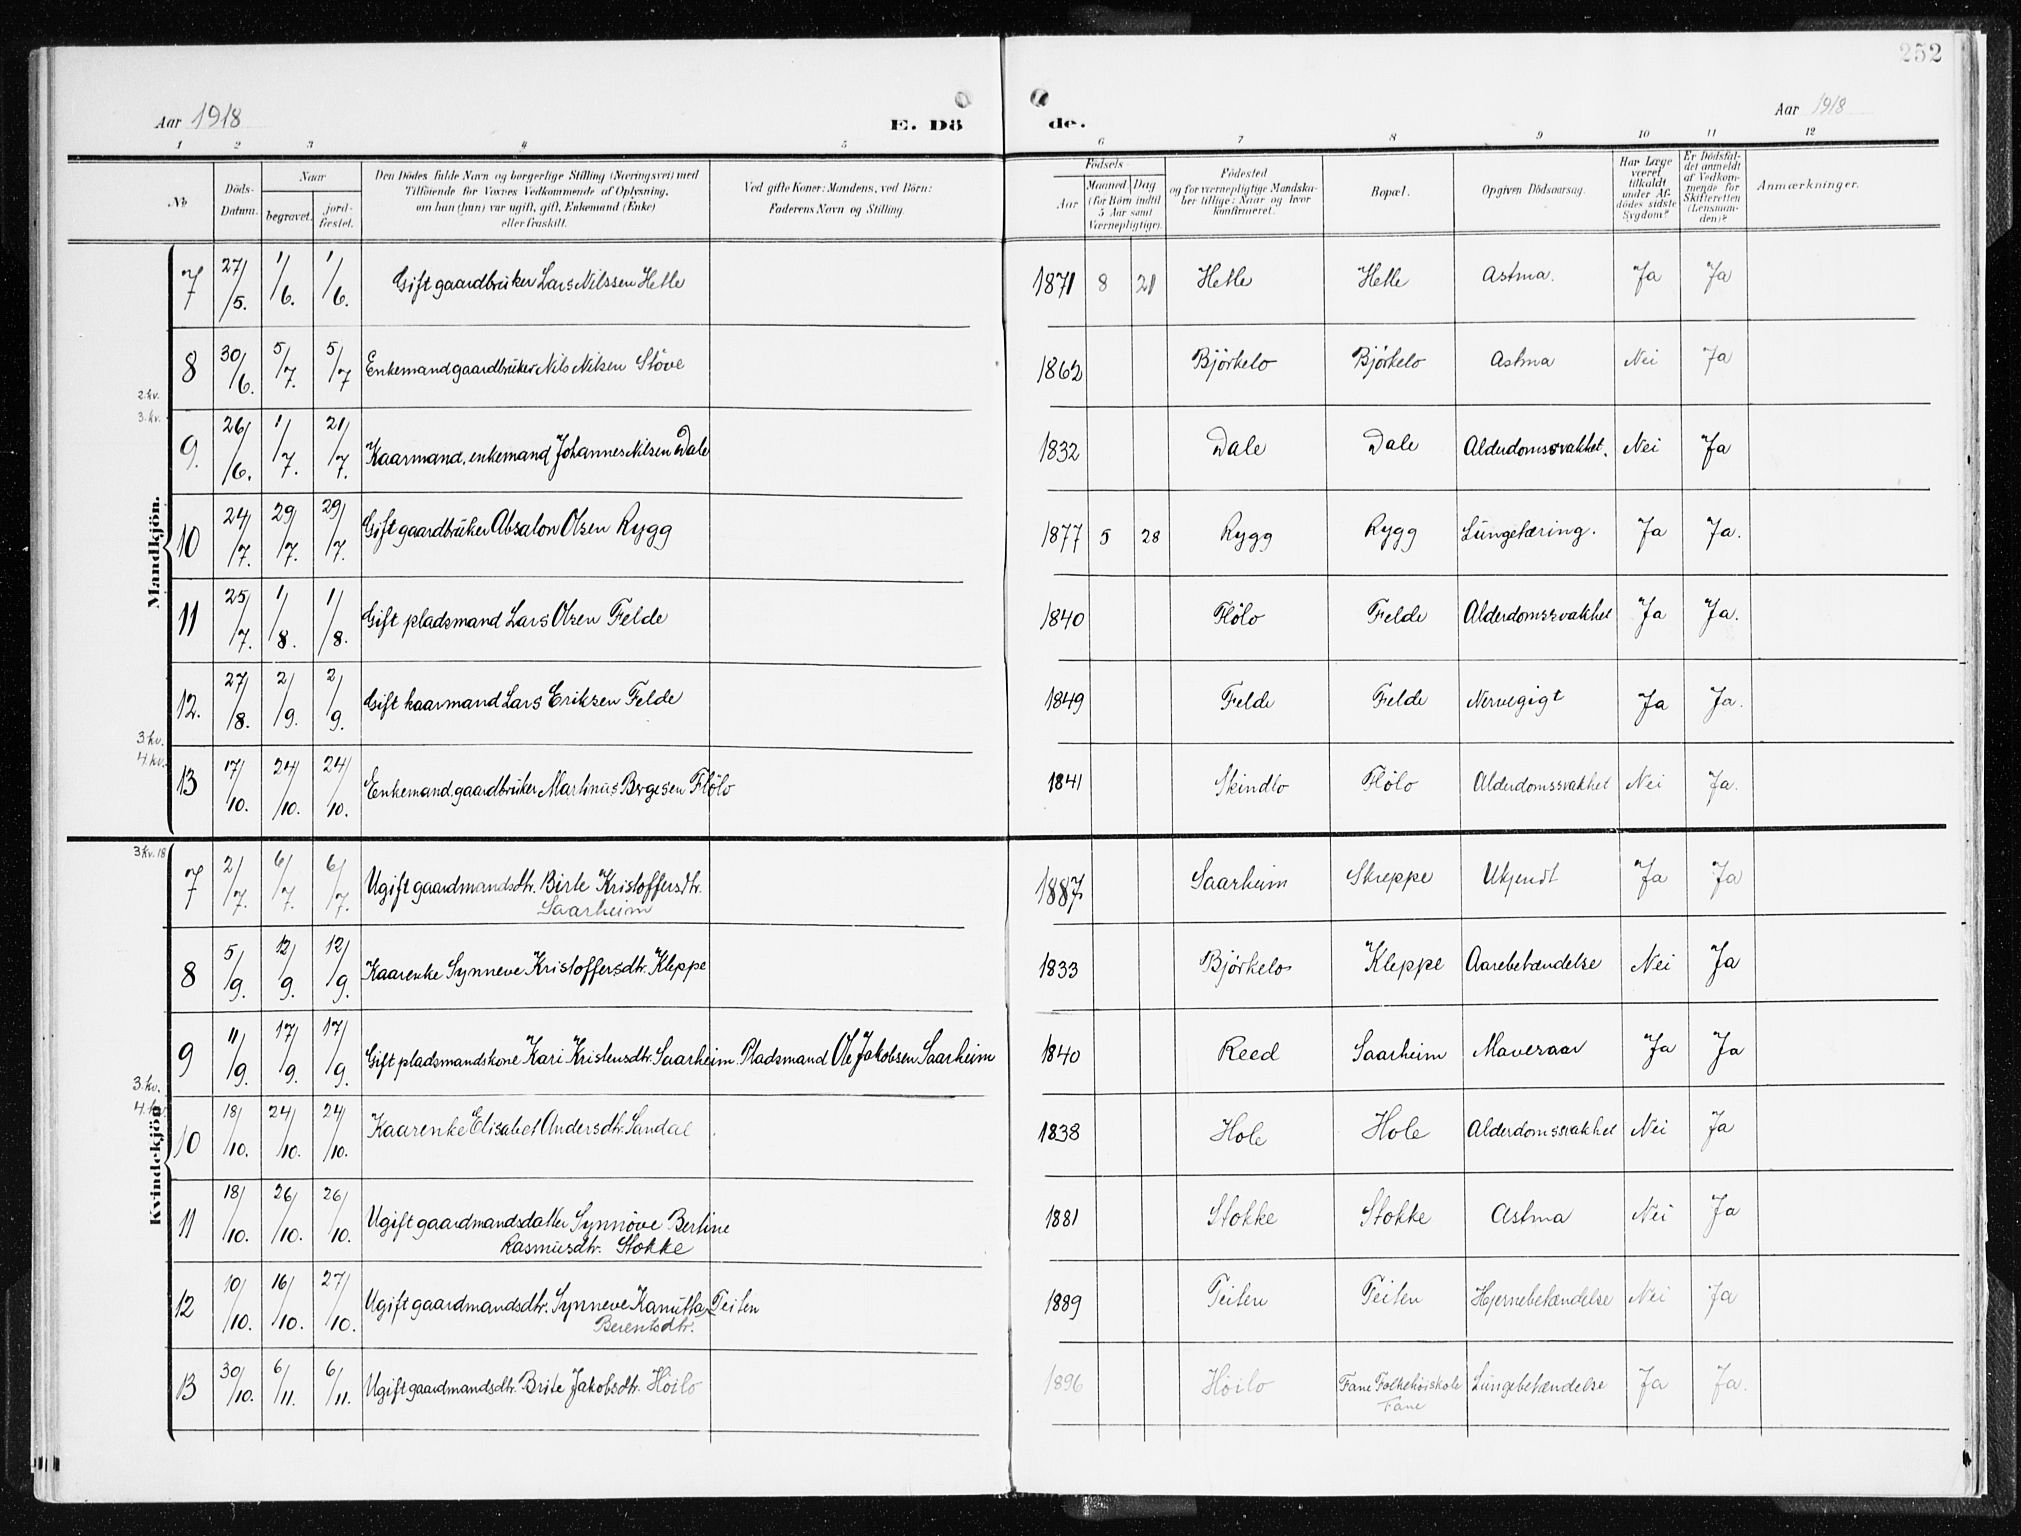 252
Aar 1918
E. Dö
de.
Aar 1918
1 2 3 4 5 6 7 8 9 10 11 12
№
Döds-Datum.
Naar
begravet.
jord-fæstet.
Den Dödes fulde Navn og borgerlige Stilling (Næringsvei) med
Tilföiende for Voxnes Vedkommende af Oplysning,
om han (hun) var ugift, gift, Enkemand (Enke)
eller fraskilt.
Ved gifte Koner: Mandens, ved Börn:
Faderens Navn og Stilling.
Födsels
Aar
Maaned Dag
(for Börn indtil
5 Aar samt
Værnepligtige)
Födested
og for værnepligtige Mandska-
ber tillige: Naar og hvor
konfirmeret.
Bopæl.
Opgiven Dödsaarsag.
Har Læge
været
tilkaldt
under Af-
dödes sidste
Sygdom?
Er Dödsfal-
det anmeldt
af Vedkom-
mende for
Skifteretten
(Lensman-
den)?
Anmærkninger.
Mandkjön.
7 27/5. 1/6. 1/6. Gift gaardbruker Lars Nilssen Hetle 1871 8 21 Hetle Hetle Astma. Ja Ja
8 30/6. 5/7. 5/7 Enkemand gaardbruker Nils Nilsen Stöve 1862 Björkelo Björkelo Astma Nei Ja
2. kv.
3. kv.
9. 26/6. 1/7. 21/7. Kaarmand, enkemand Johannes Nilsen Dale 1832 Dale Dale Alderdomssvakhet. Nei Ja
10 24/7. 29/7. 29/7. Gift gaardbruker Absalon Olsen Rygg 1877 5 28 Rygg Rygg Lungetæring. Ja Ja.
11 25/7. 1/8. 1/8. Gift pladsmand Lars Olsen Felde 1840 Flölo Felde Alderdomssvakhet Ja Ja.
12. 27/8. 2/9. 2/9. Gift kaarmand Lars Eriksen Felde 1849 Felde Felde Nervegigt Ja Ja.
3. kv.
4. kv.
13 17/10. 24/10. 24/10. Enkemand, gaardbruker Martinus Bergesen Flölo 1841 Skindlo Flölo Alderdomssvakhet Nei Ja.
Kvindekjön
3 kv. 18
7 2/7. 6/7. 6/7. Ugift gaardmandsdtr. Birte Kristoffersdtr. 1887 Saarheim Skreppe Ukjendt Ja Ja
Saarheim
8 5/9. 12/9. 12/9. Kaarenke Synneve Kristoffersdtr. Kleppe 1833 Björkelo Kleppe Aarebetændelse Nei Ja
9 11/9. 17/9. 17/9. Gift pladsmandskone Kari Kristensdtr. Saarheim. Pladsmand Ole Jakobsen Saarheim 1840 Reed Saarheim Mavesaar Ja Ja
3. kv.
4. kv.
10 18/10. 24/10. 24/10. Kaarenke Elisabet Andersdtr. Sandal 1838 Hole Hole Alderdomssvakhet Nei Ja
11 18/10. 26/10. 26/10. Ugift gaardmandsdatter Synnöve Bertine 1881 Stokke Stokke Astma Nei Ja
Rasmusdtr. Stokke
12 10/10. 16/10. 27/10. Ugift gaardmandsdtr. Synneve Kanutta Teiten 1889 Teiten Teiten Hjernebetændelse Nei Ja
Berentsdtr.
13 30/10. 6/11. 6/11. Ugift gaardmandsdtr. Brite Jakobsdtr. Höilo 1896 Höilo Fane Folkehöiskole Lungebetændelse Ja Ja.
Fane